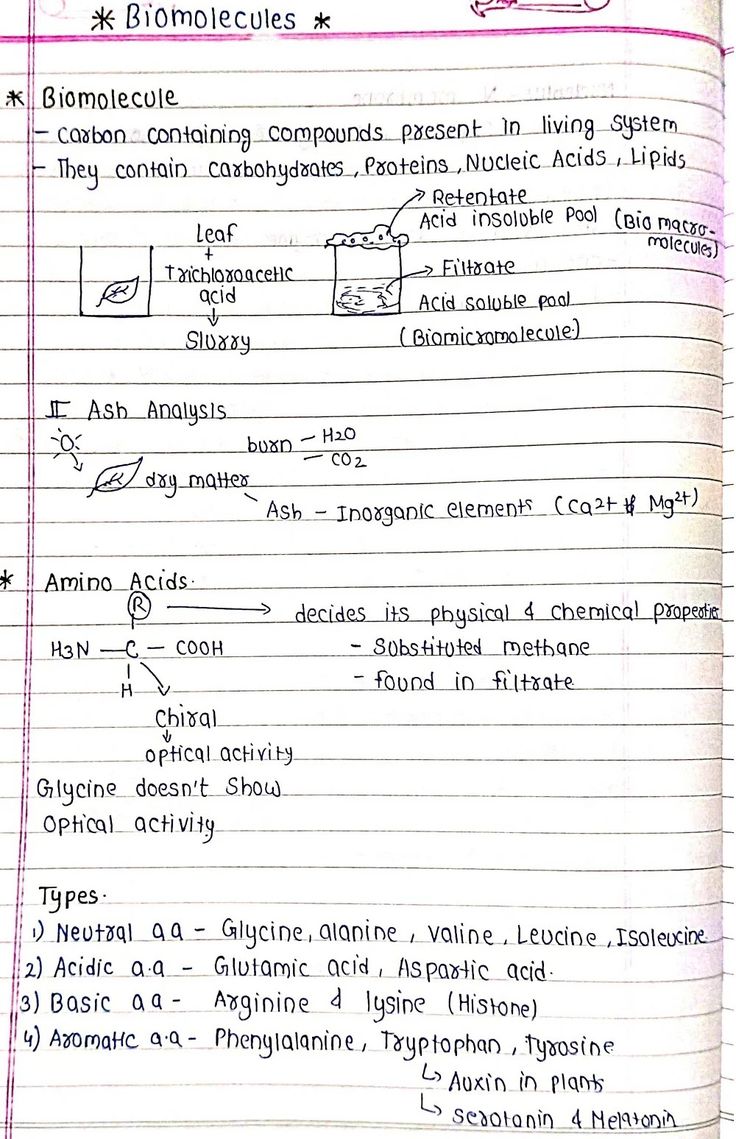 * Biomolecules *
* Biomolecule
- Carbon containing compounds present in living system
- They contain carbohydrates, Proteins, Nucleic Acids, Lipids
Leaf
+
Trichloroacetic
acid
↓
Slurry
→ Retentate
Acid insoluble pool (Bio macro-
molecules)
→ Filtrate
Acid soluble pool
(Biomicromolecule)
II Ash Analysis
burn - H2O
- CO2
dry matter
Ash - Inorganic elements (Ca2+ & Mg2+)
* Amino Acids.
R → decides its physical & chemical properties
H3N - C - COOH
H
- Substituted methane
- found in filtrate
Chiral
↓
optical activity
Glycine doesn't show
optical activity
Types.
1) Neutral aa - Glycine, alanine, valine, Leucine, Isoleucine
2) Acidic a.a - Glutamic acid, Aspartic acid.
3) Basic aa - Arginine & lysine (Histone)
4) Aromatic a.a - Phenylalanine, Tryptophan, Tyrosine
↳ Auxin in plants
↳ Serotonin & Melatonin